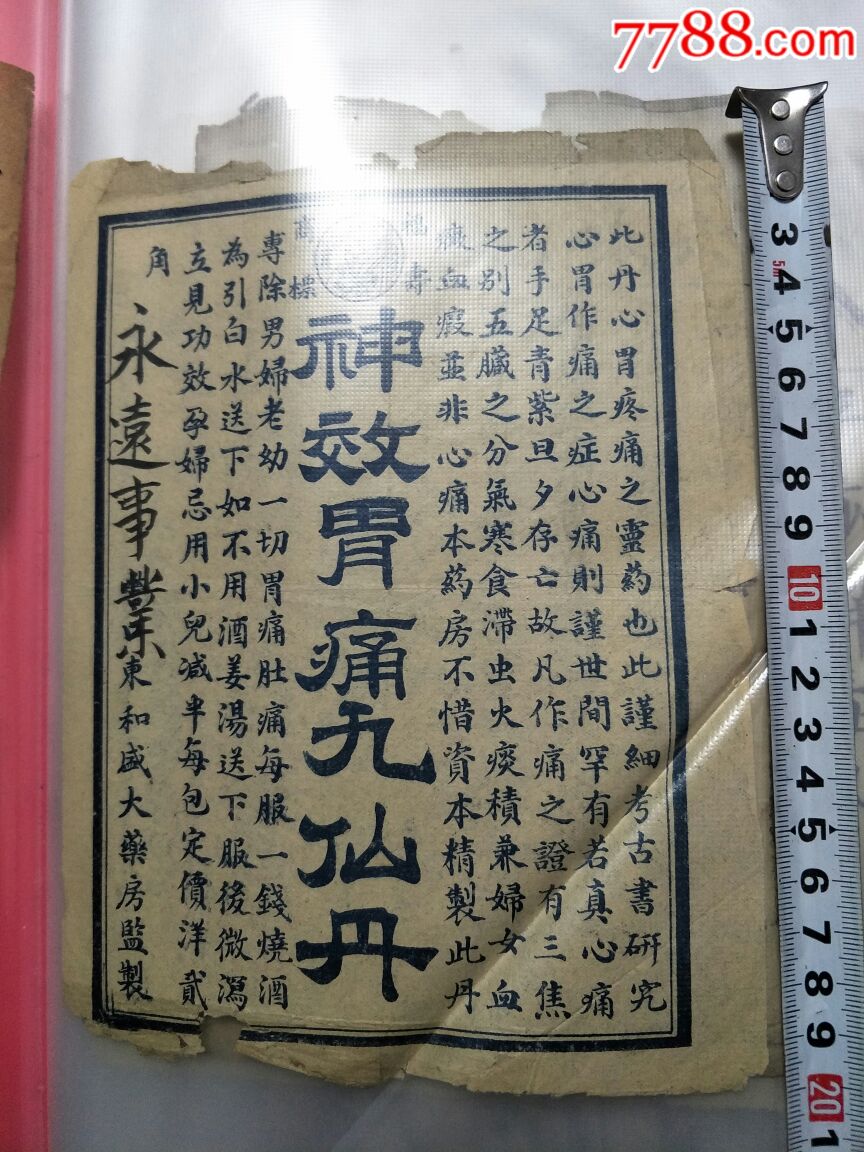 7788.com
此丹心胃疼痛之靈葯也此謹細考古書研究
心胃作痛之症心痛則謹世間罕有若真心痛
者手足青紫旦夕存亡故凡作痛之證有三焦
之别五臟之分氣寒食滯虫火痰積兼婦女血
癥血瘕並非心痛本葯房不惜資本精製此丹
福壽
商標
神效胃痛九仙丹
專除男婦老幼一切胃痛肚痛每服一錢燒酒
為引白水送下如不用酒姜湯送下服後微瀉
立見功效孕婦忌用小兒减半每包定價洋貳
角
永遠事業
東和盛大藥房監製
3
4
5m
5
6
7
8
9
10
1
2
3
4
5
6
7
8
9
20
1